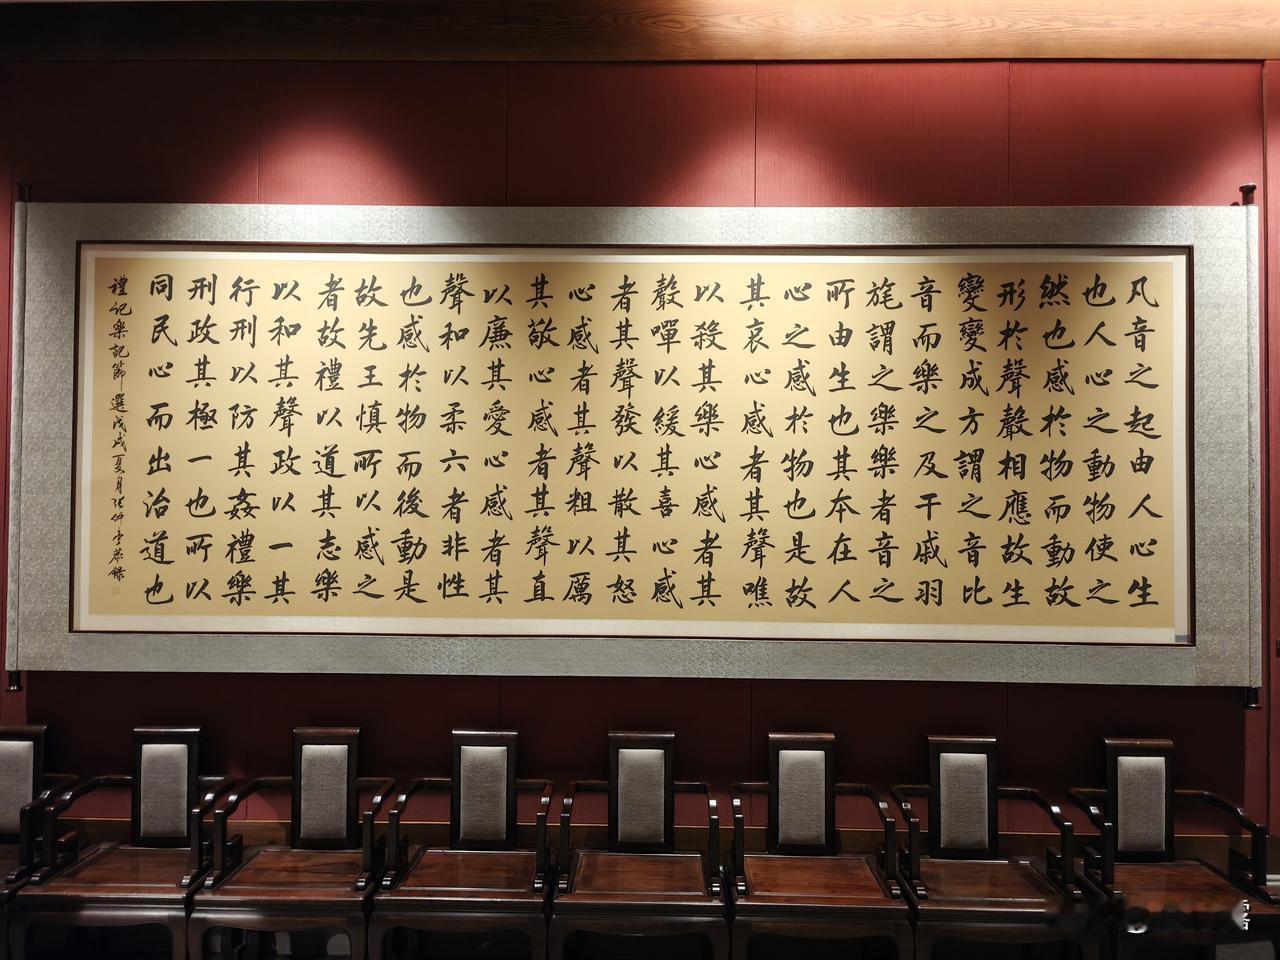 凡音之起由人心生
也人心之動物使之
然也感於物而動故
形於聲聲相應故生
變變成方謂之音比
音而樂之及干戚羽
旄謂之樂樂者音之
所由生也其本在人
心之感於物也是故
其哀心感者其聲噍
以殺其樂心感者其
聲嘽以緩其喜心感
者其聲發以散其怒
心感者其聲粗以厲
其敬心感者其聲直
以廉其愛心感者其
聲和以柔六者非性
也感於物而後動是
故先王慎所以感之
者故禮以道其志樂
以和其聲政以一其
行刑以防其姦禮樂
刑政其極一也所以
同民心而出治道也
禮記樂記節選戊戌夏月張仲亭恭錄